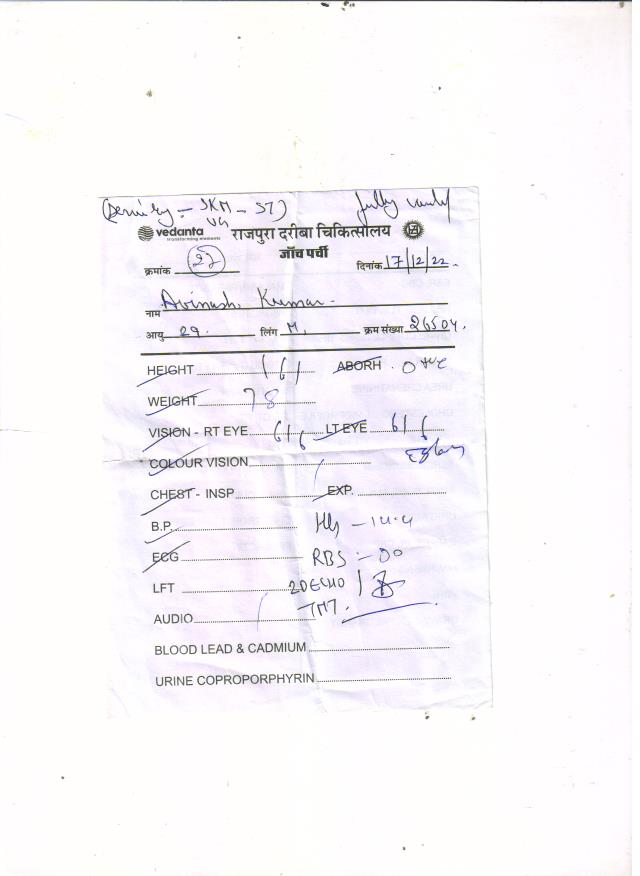 (Deminry - SKM - ST)
UG
vedanta राजपुरा दरीबा चिकित्सालय
transforming elements
जाँच पर्ची
क्रमांक 22 दिनांक 17/12/22
नाम Avinash Kumar
आयु 29. लिंग M. क्रम संख्या 26504.
HEIGHT 161 ABORH. O+ve
WEIGHT 78
VISION - RT EYE 6/6 LT EYE 6/6
COLOUR VISION
CHEST - INSP EXP.
B.P. Hb - 14.4
ECG RBS :-
LFT 2DECHO
AUDIO TMT.
BLOOD LEAD & CADMIUM
URINE COPROPORPHYRIN